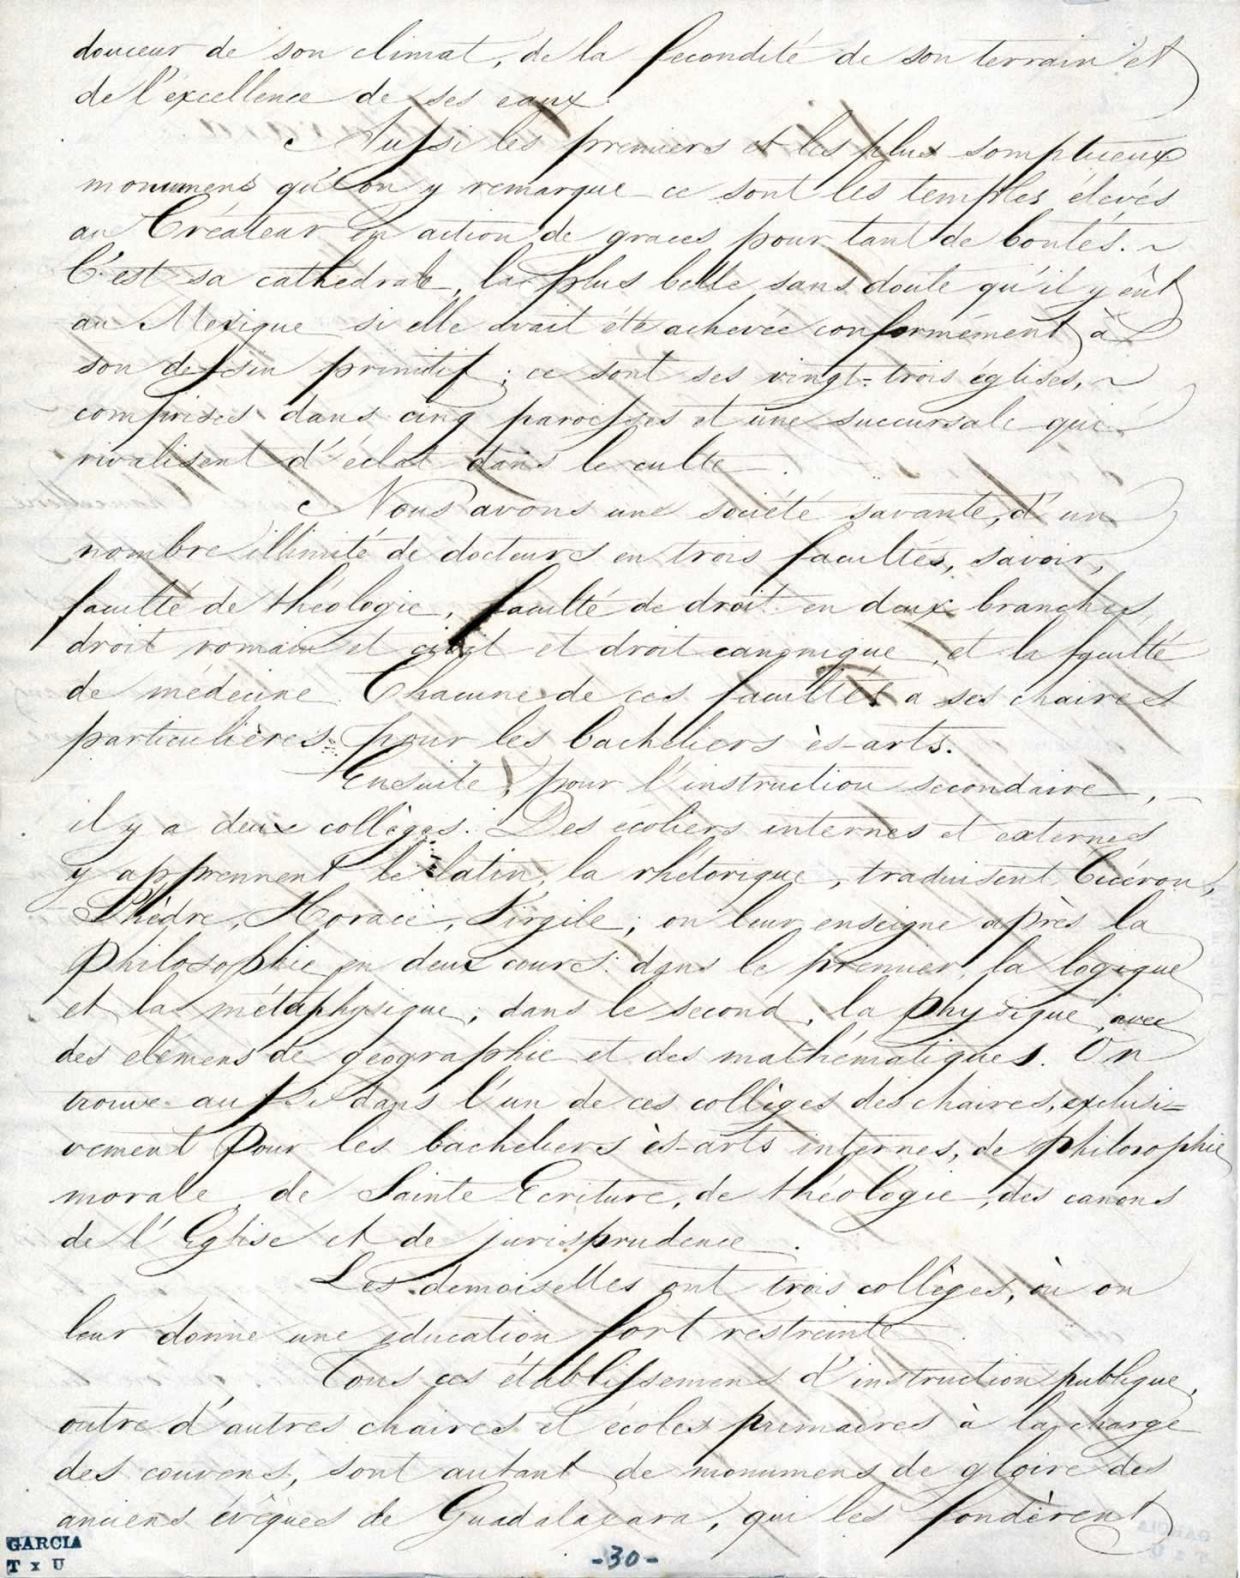 douceur de son climat, de la fecondité de son terrain et
de l'excellence de ses eaux.
Aussi les premiers et les plus somptueux
monumens qu'on y remarque ce sont les temples élevés
au Créateur en action de graces pour tant de bontés. ~
C'est sa cathédrale, la plus belle sans doute qu'il y eût
au Mexique si elle avait été achevée conformément à
son dessin primitif; ce sont ses vingt-trois églises, ~
comprises dans cinq paroisses et une succursale qui
rivalisent d'éclat dans le culte.
Nous avons une société savante, d'un
nombre illimité de docteurs en trois facultés, savoir,
faculté de théologie, faculté de droit en deux branches,
droit romain et et droit canonique, et la faculté
de médecine. Chacune de ces facultés a ses chaires
particulières pour les bacheliers ès-arts.
Ensuite, pour l'instruction secondaire, —
il y a deux collèges. Des écoliers internes et externes
y apprennent le latin, la rhétorique, traduisent Cicéron,
Phèdre, Horace, Virgile; on leur enseigne après la
Philosophie en deux cours: dans le premier, la logique
et la métaphysique; dans le second, la physique avec
des elémens de géographie et des mathématiques. On
trouve aussi dans l'un de ces collèges des chaires, exclusi=
vement pour les bacheliers ès-arts internes, de philosophie
morale, de Sainte Ecriture, de théologie, des canons
de l'Eglise et de jurisprudence.
Les demoiselles ont trois collèges, où on
leur donne une education fort restreinte.
Tous ces établissemens d'instruction publique,
outre d'autres chaires et écoles primaires à la charge
des couvens, sont autant de monumens de gloire des
anciens évêques de Guadalaxara, qui les fondèrent
GARCIA
T x U
-30-